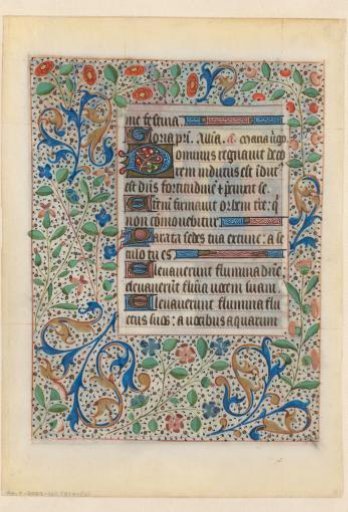 me festina
Gloria pri. Alla. a. maria ṽgo
Dominus regnavit deco
rem indutus est idut᷒
est dñs fortitudinē ⁊ prinxit se.
Etenī firmavit orbem tre: q̄
non cōmovebitur
Parata sedes tua extunc: a se
culo tu es
Elevaverunt flumina dñe:
elevaverūt fluīa vocem suam
Elevaverunt flumina flu
ctus suos: a vocibus aquarum